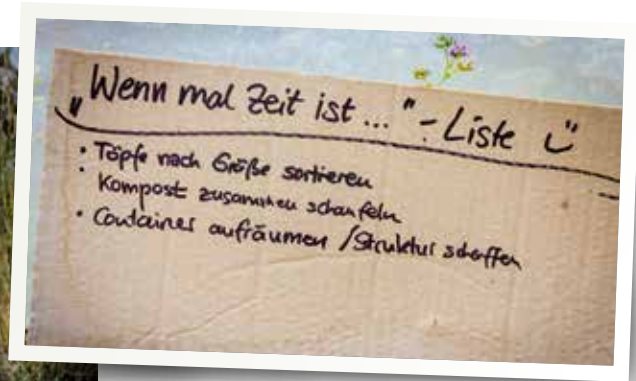 „Wenn mal Zeit ist..." - Liste ü
• Töpfe nach Größe sortieren
• Kompost zusammen schaufeln
• Container aufräumen / Struktur schaffen